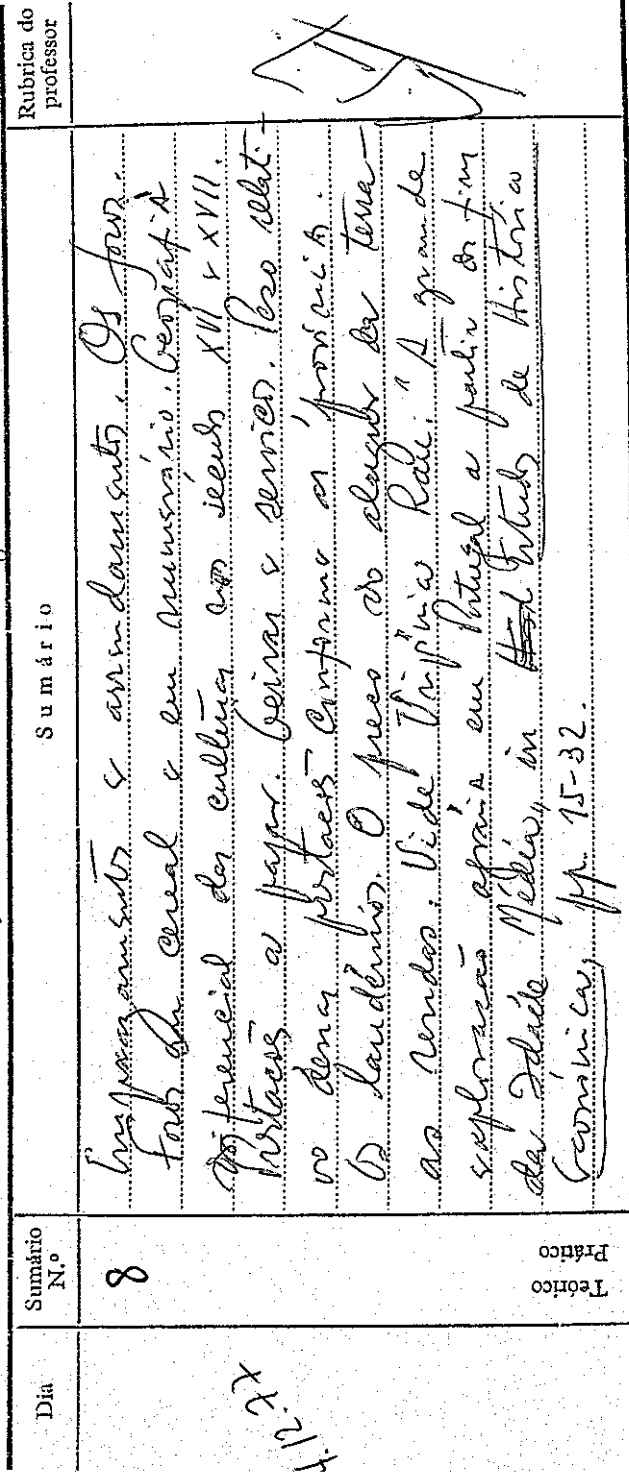 Dia
Sumário N.º
Sumário
Rubrica do professor
8
Teórico
Prático
Emprazamentos e arrendamentos. Os foros.
Foros em cereal e em numerário. Geografia
diferencial das culturas nos séculos XVI e XVII.
Prestações a pagar. Geiras e serviços. Peso relati-
vo denas prestações conforme as províncias.
Os laudémios. O preço do aluguer da terra —
as rendas. Vide Virgínia Rau. "A grande
exploração agrária em Portugal a partir dos fins
da Idade Média, in Estudos de História
Económica, pp. 15-32.